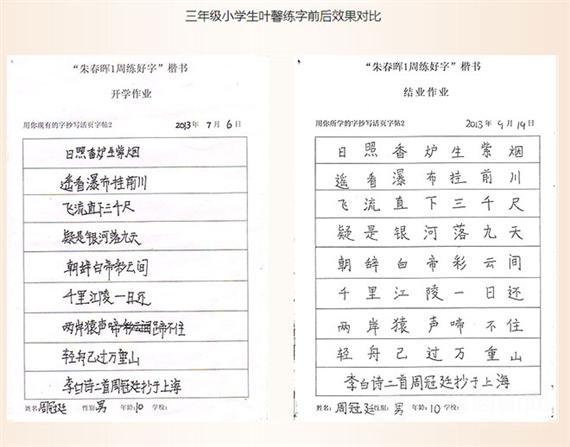 三年级小学生叶馨练字前后效果对比
“朱春晖1周练好字”楷书
开学作业
用你现有的字抄写活页字帖2 2013年 7月 6日
日照香炉生紫烟
遥看瀑布挂前川
飞流直下三千尺
疑是银河落九天
朝辞白帝彩云间
千里江陵一日还
两岸猿声啼彩云间蹄不住
轻舟已过万重山
李白诗二首周冠廷抄于上海
姓名:周冠廷 性别:男 年龄:10 学校:
“朱春晖1周练好字”楷书
结业作业
用你所学的字抄写活页字帖2 2013年 9月 14日
日照香炉生紫烟
遥看瀑布挂前川
飞流直下三千尺
疑是银河落九天
朝辞白帝彩云间
千里江陵一日还
两岸猿声啼不住
轻舟已过万重山
李白诗二首周冠廷抄于上海
姓名:周冠廷 性别:男 年龄:10 学校: